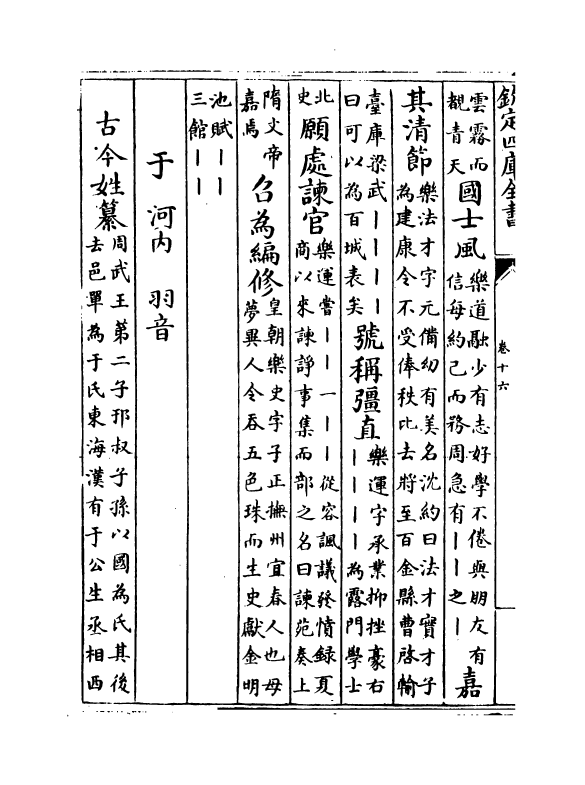 欽定四庫全書
卷十六
雲霧而
覩青天
國士風
樂道融少有志好學不倦與朋友有
信每約己而務周急有丨丨之丨
嘉
其清節
樂法才字元備幼有美名沈約曰法才實才子
為建康令不受俸秩比去將至百金縣曹啓輸
臺庫梁武丨丨丨丨
曰可以為百城表矣
號稱彊直
樂運字承業抑挫豪右
丨丨丨丨為露門學士
北
史
願處諫官
樂運嘗丨丨一丨丨從容諷議發憤録夏
商以來諫諍事集而部之名曰諫苑奏上
隋文帝
嘉焉
召為編修
皇朝樂史字子正撫州宜春人也母
夢異人令吞五色珠而生史獻金明
池賦丨丨
三館丨丨
于 河内 羽音
古今姓纂
周武王第二子邘叔子孫以國為氏其後
去邑單為于氏東海漢有于公生丞相西